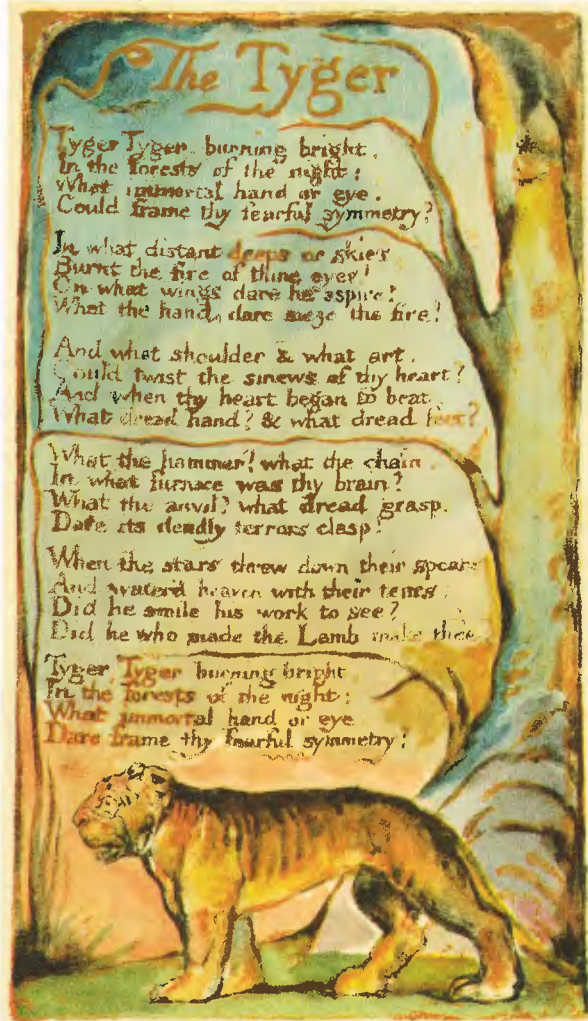 The Tyger
Tyger Tyger burning bright,
In the forests of the night:
What immortal hand or eye.
Could frame thy fearful symmetry?
In what distant deeps or skies
Burnt the fire of thine eyes?
On what wings dare he aspire?
What the hand, dare sieze the fire?
And what shoulder & what art.
Could twist the sinews of thy heart?
And when thy heart began to beat
What dread hand? & what dread feet?
What the hammer? what the chain
In what furnace was thy brain?
What the anvil? what dread grasp.
Dare its deadly terrors clasp?
When the stars threw down their spears
And water'd heaven with their tears:
Did he smile his work to see?
Did he who made the Lamb make thee
Tyger Tyger burning bright
In the forests of the night:
What immortal hand or eye
Dare frame thy fearful symmetry?